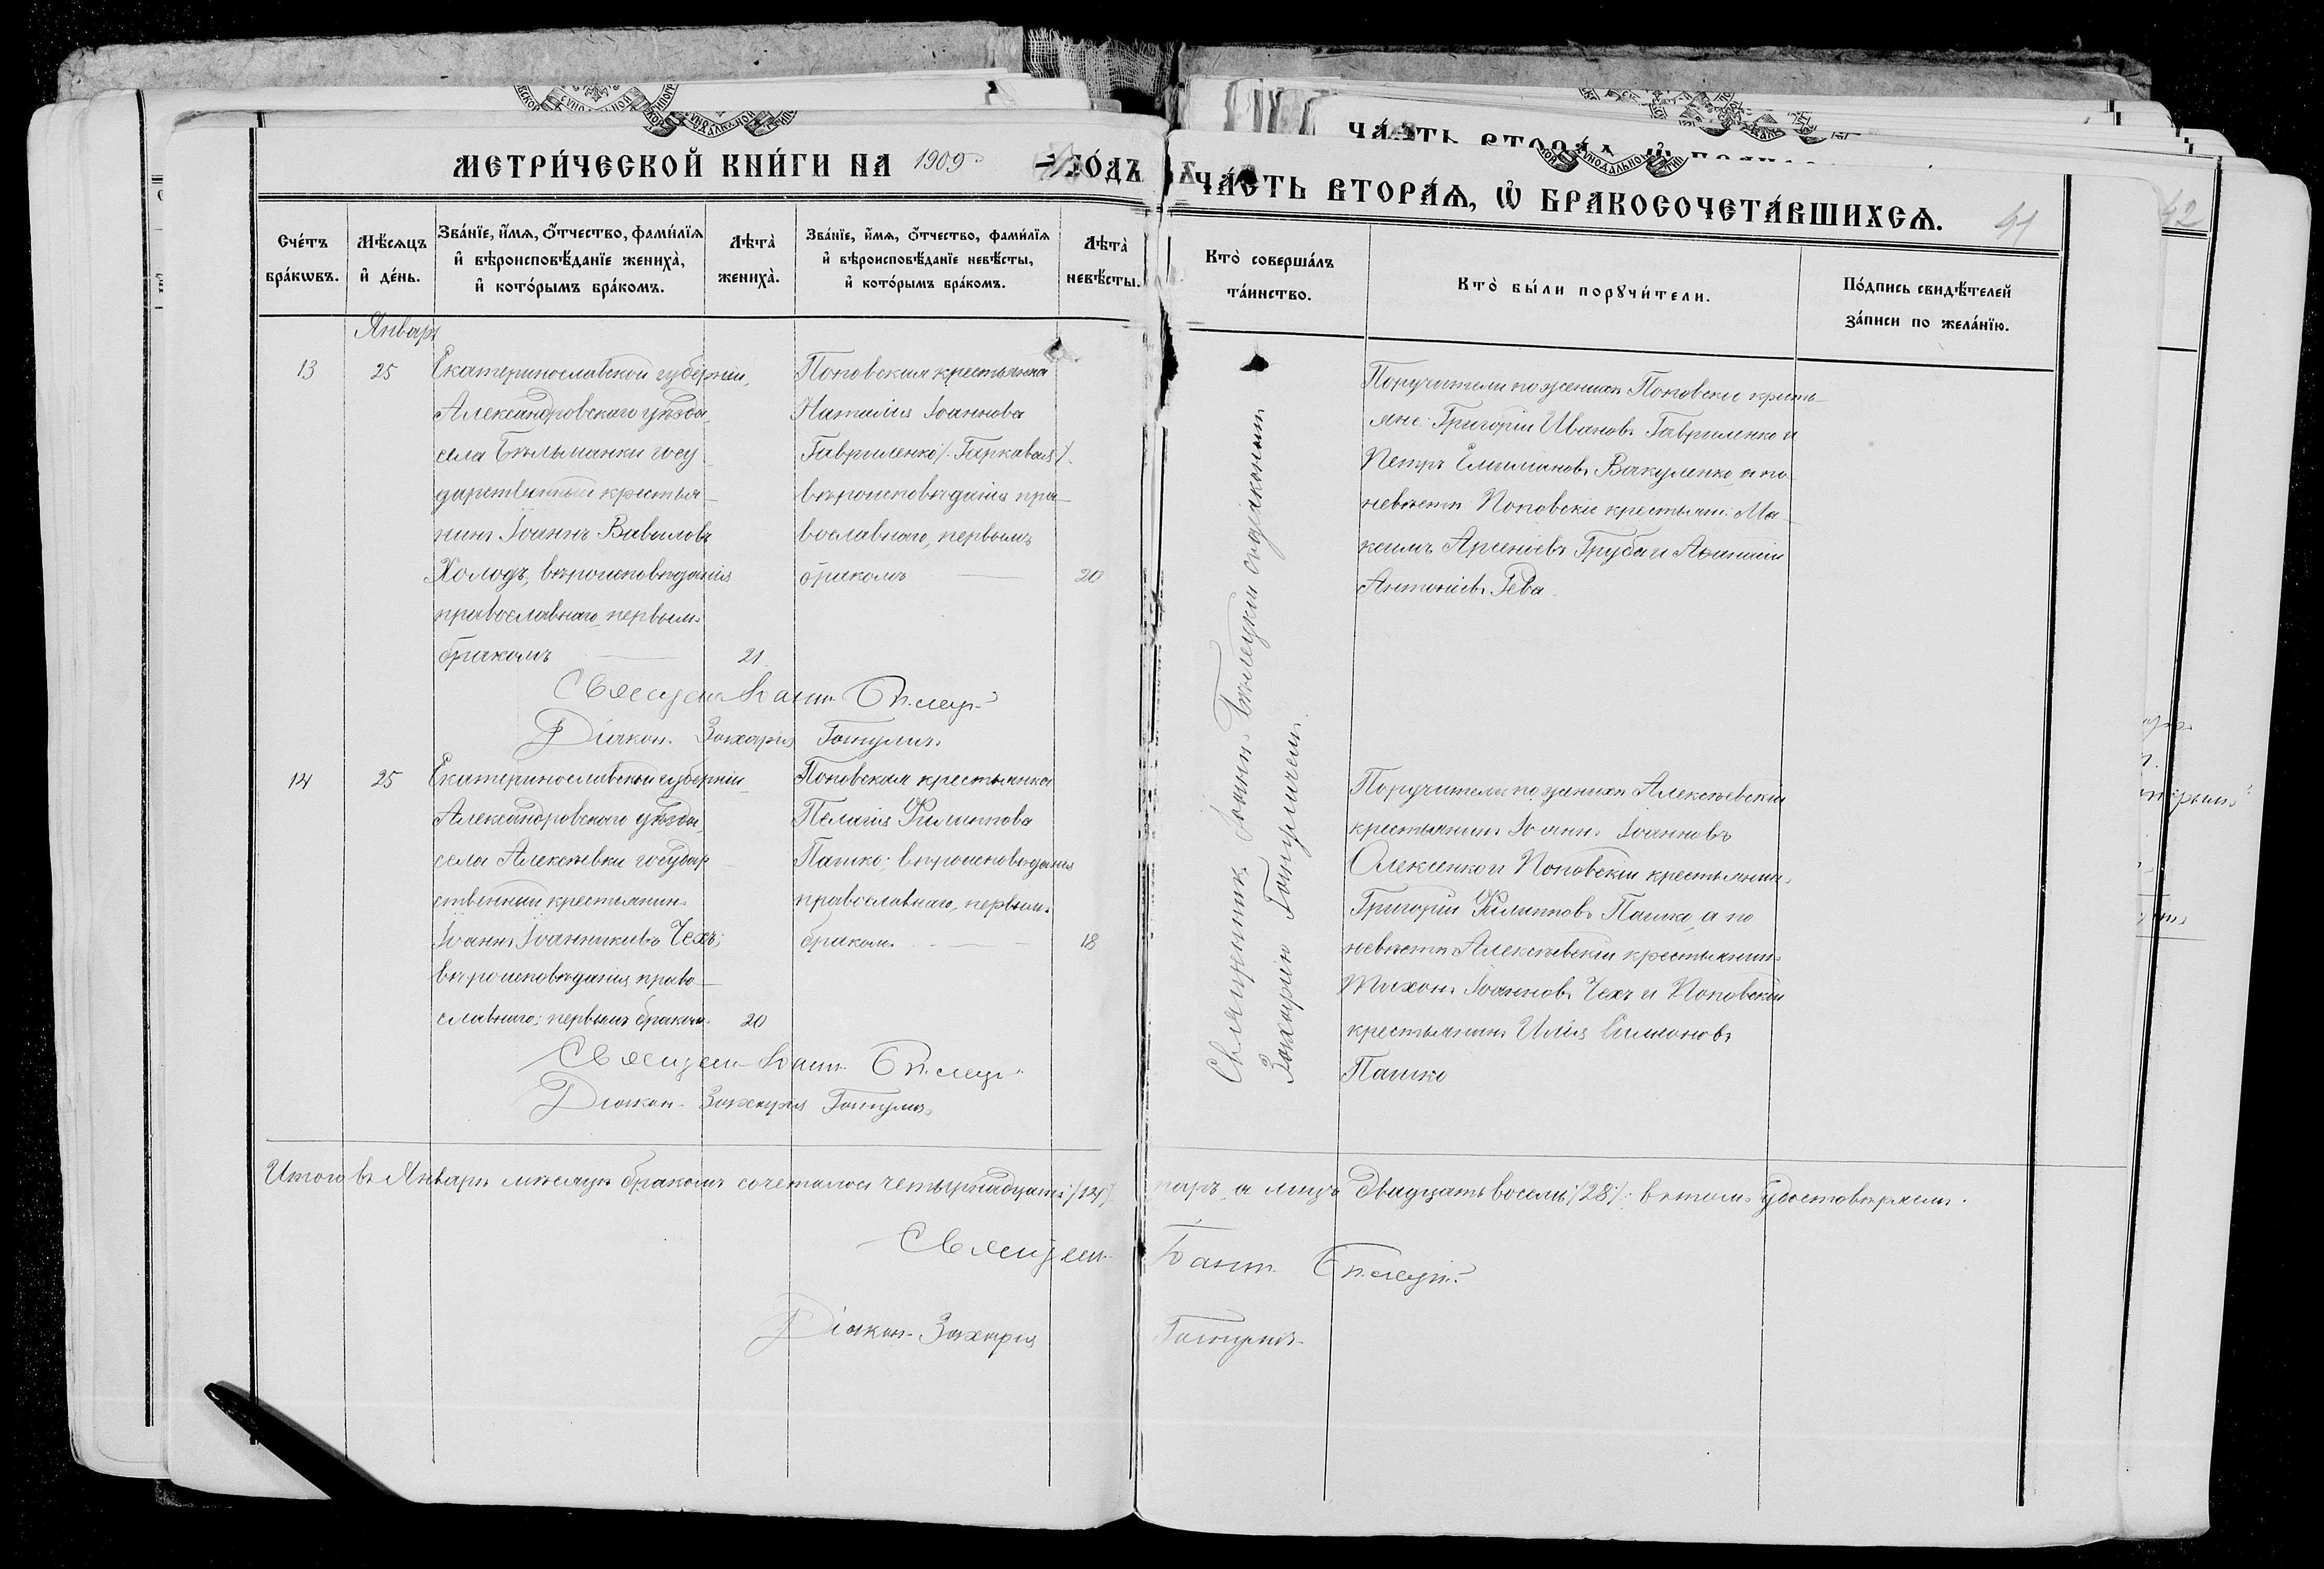 МЕТРИ́ЧЕСКОЙ КНИ́ГИ НА 1909 ГО́ДЪ
ЧА́СТЬ ВТОРА́Ѧ, Ѽ БРАКОСОЧЕТА́ВШИХСѦ.
41
42
Сче́тъ бра́кѡвъ.
Мѣ́сѧцъ и҆ де́нь.
Зва́нїе, и҆́мѧ, ѻ҆́тчество, фами́лїѧ и҆ вѣроисповѣ́данїе жениха̀, и҆ кото́рымъ бра́комъ.
Лѣта̀ жениха̀.
Зва́нїе, и҆́мѧ, ѻ҆́тчество, фами́лїѧ и҆ вѣроисповѣ́данїе невѣ́сты, и҆ кото́рымъ бра́комъ.
Лѣта̀ невѣ́сты.
Кто̀ соверша́лъ та́инство.
Кто̀ бы́ли порꙋчи́тели.
По́дпись свидѣ́телей за́писи по жела́нїю.
Январь
13
25
Екатеринославской губерніи,
Александровскаго уѣзда,
села Бѣльманки госу
дарственный крестья-
нинъ Іоаннъ Вавиловъ
Холодъ, вѣроисповѣданія
православнаго, первымъ
бракомъ
21
Поповская крестьянка
Наталія Іоаннова
Гавриленко /: Гаркавая :/
вѣроисповѣданія пра-
вославнаго, первымъ
бракомъ
20
Священникъ Іоаннъ Бѣлецкій съ діакономъ
Захаріемъ Гошулячем.
Поручители по женихѣ Поповскіе кресть-
яне: Григорій Ивановъ Гавриленко и
Петръ Емиліановъ Вакуленко, а по
невѣстѣ Поповскіе крестьяне: Ма-
ксимъ Арсеніевъ Груба и Афанасій
Антоніевъ Гева.
Священ. Іоанн. Бѣлец.
Діакон. Захарія
14
25
Екатеринославской губерніи
Александровскаго уѣзда,
села Алексѣевки государ
ственный крестьянинъ
Іоаннъ Іоанникіевъ Чехъ;
вѣроисповѣданія право-
славнаго; первымъ бракомъ
20
Поповская крестьянка
Пелагія Филиппова
Пашко; вѣроисповѣданія
православнаго, первымъ
бракомъ
18
Поручители по женихѣ Алексѣевскій
крестьянинъ Іоаннъ Іоанновъ
Олексенко и Поповскій крестьянинъ
Григорій Филипповъ Пашко, а по
невѣстѣ Алексѣевскій крестьянинъ
Тихонъ Іоанновъ Чехъ и Поповскій
крестьянинъ Илія Симоновъ
Пашко
Священ. Іоанн. Бѣлец.
Діакон. Захарія
Итого въ Январѣ мѣсяцѣ бракомъ сочеталось четырнадцать /14/ паръ, а лицъ двадцать восемь /28/: въ томъ удостовѣряемъ.
Священ. Іоанн. Бѣлецкій
Діакон. Захарія